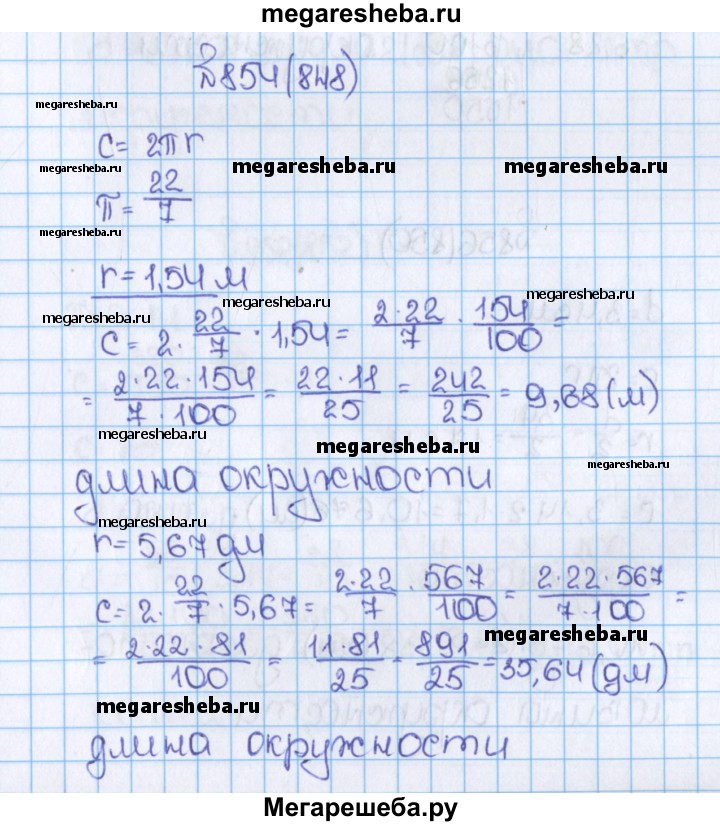 megaresheba.ru
№854(848)
megaresheba.ru
C= 2πr
megaresheba.ru megaresheba.ru megaresheba.ru
π= 22/7
megaresheba.ru
r=1,54 м
megaresheba.ru megaresheba.ru
C= 2·22/7·1,54= 2·22/7·154/100=
= 2·22·154/7·100= 22·11/25= 242/25= 9,68(м)
megaresheba.ru
megaresheba.ru
длина окружности
megaresheba.ru
r=5,67 дм
C=2·22/7·5,67= 2·22/7·567/100= 2·22·567/7·100=
megaresheba.ru
= 2·22·81/100= 11·81/25= 891/25=35,64(дм)
megaresheba.ru
длина окружности
Мегарешеба.ру